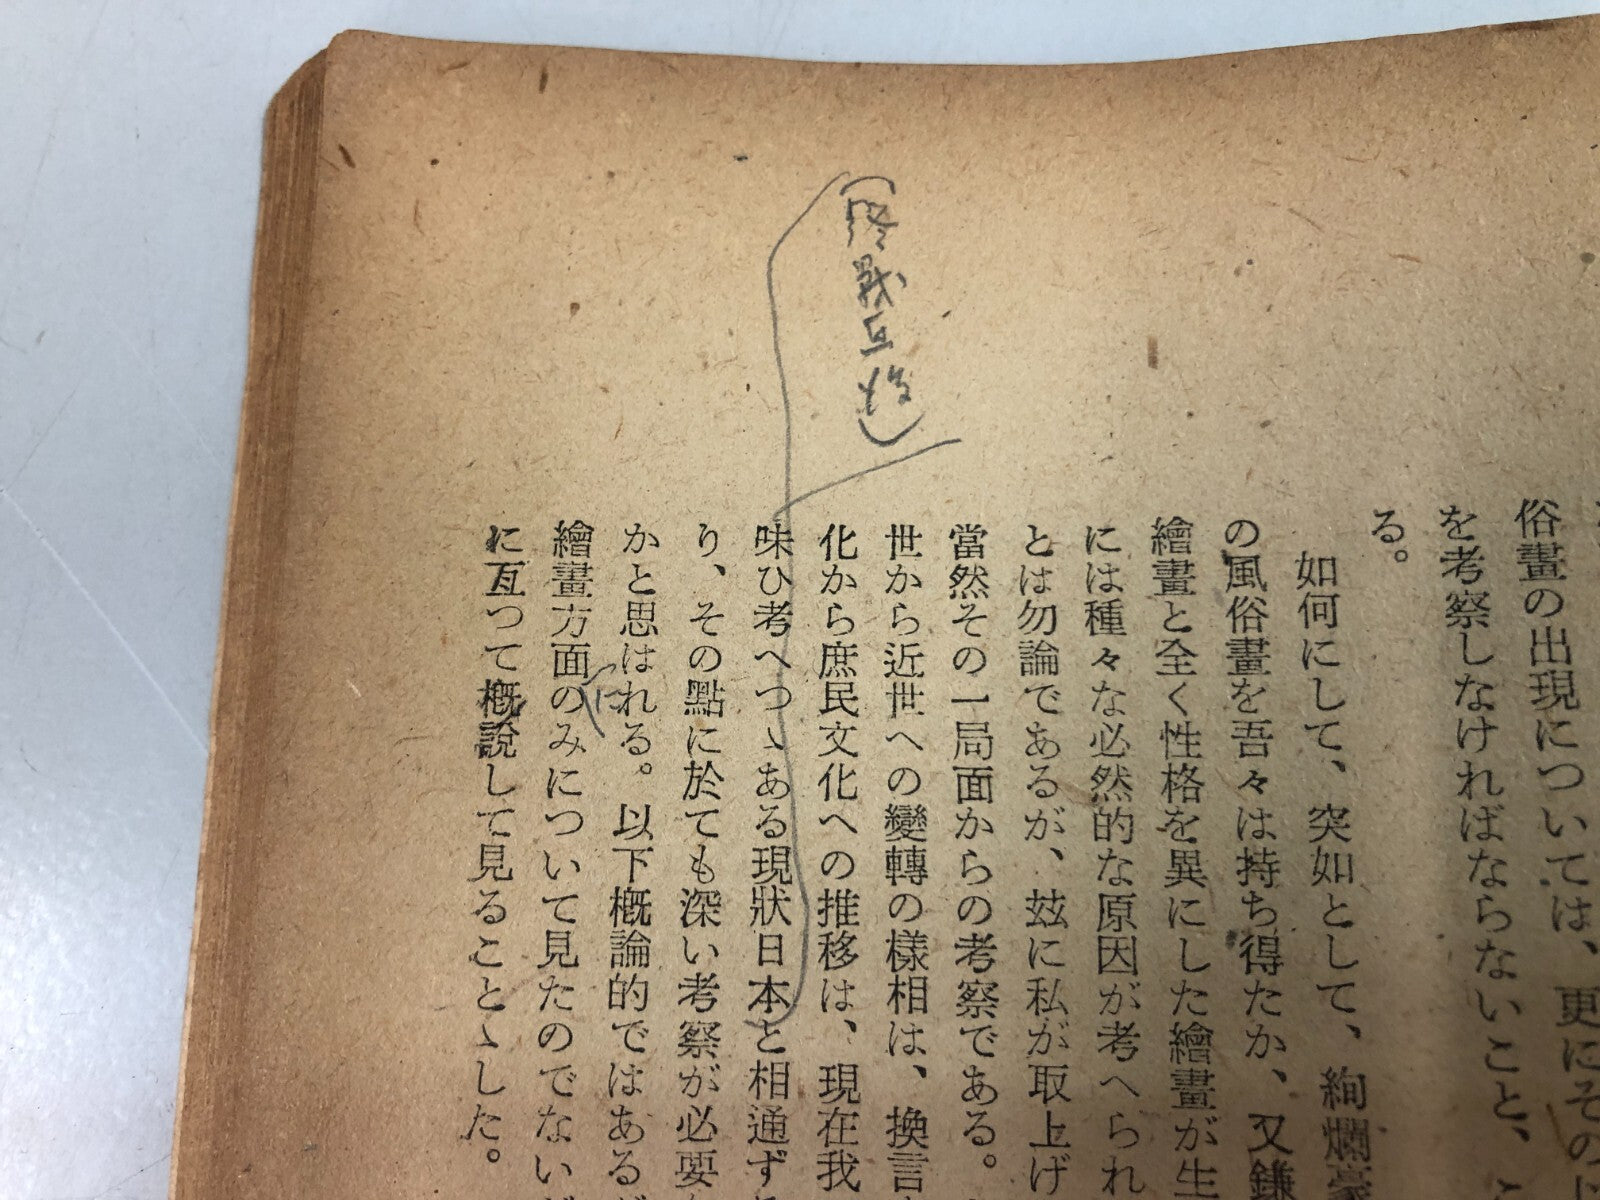 （終戰直後）
俗畫の出現については、更にその
を考察しなければならないこと、こ
る。
如何にして、突如として、絢爛豪
の風俗畫を吾々は持ち得たか、又鎌
繪畫と全く性格を異にした繪畫が生
には種々な必然的な原因が考へられ
とは勿論であるが、玆に私が取上げ
當然その一局面からの考察である。
世から近世への變轉の樣相は、換言
化から庶民文化への推移は、現在我
味ひ考へつゝある現狀日本と相通ず
り、その點に於ても深い考察が必要
かと思はれる。以下概論的ではある
に
繪畫方面のみについて見たのでない
に亙つて概說して見ることゝした。